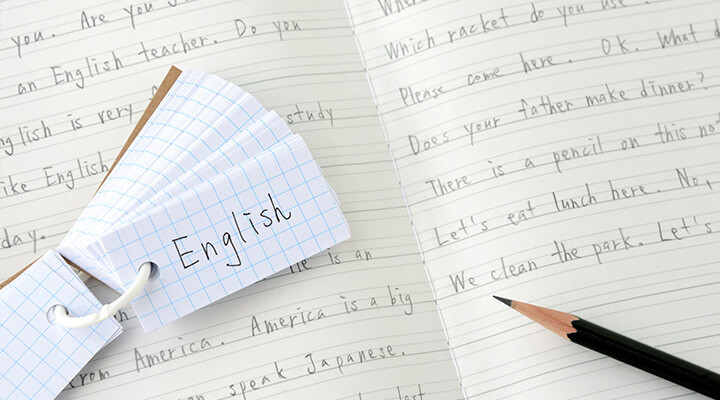 you. Are you
an English teacher. Do you
English is very
study
like English
day.
He is an
from America. America is a big
speak Japanese.
last
English
Which racket do you use
Please come here. OK. What
Does your father make dinner?
There is a pencil on this
Let's eat lunch here. No,
We clean the park. Let's